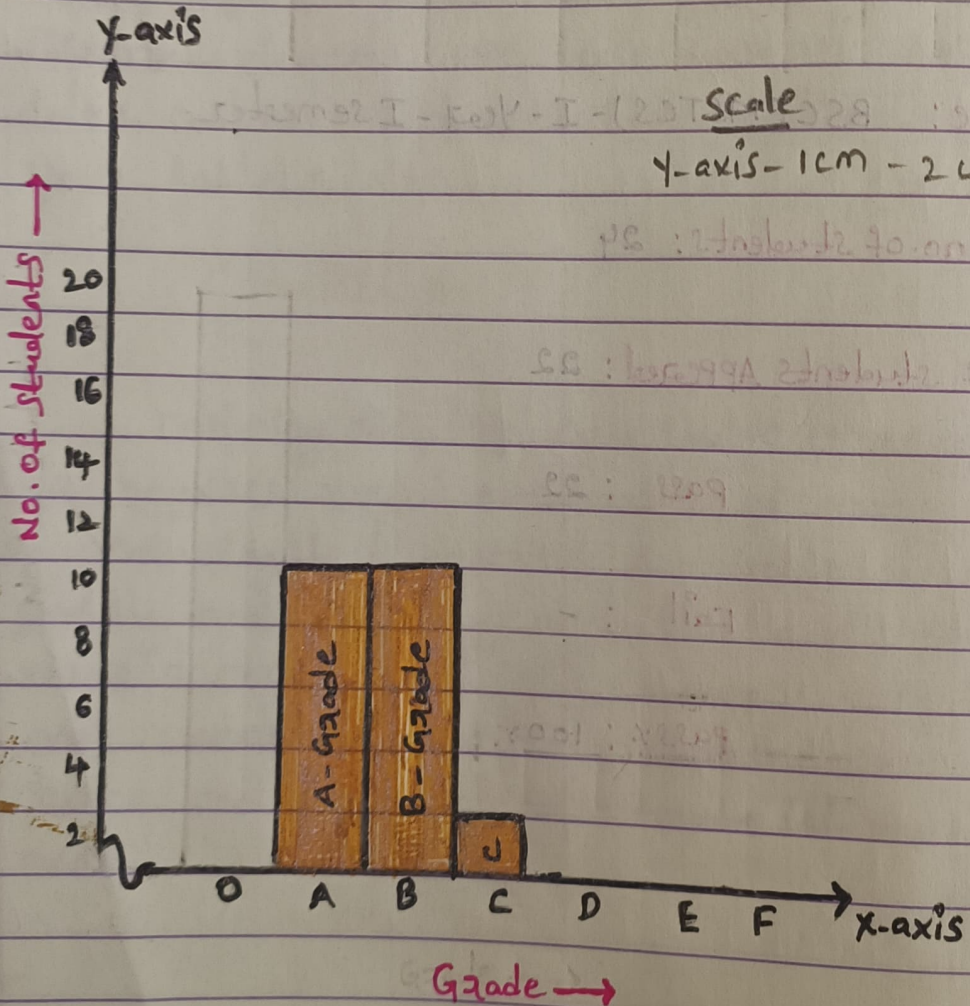 y-axis
scale
Y-axis - 1cm - 2
No. of students
20
18
16
14
12
10
8
6
4
2
A-Grade
B-Grade
C
O A B C D E F
x-axis
Grade